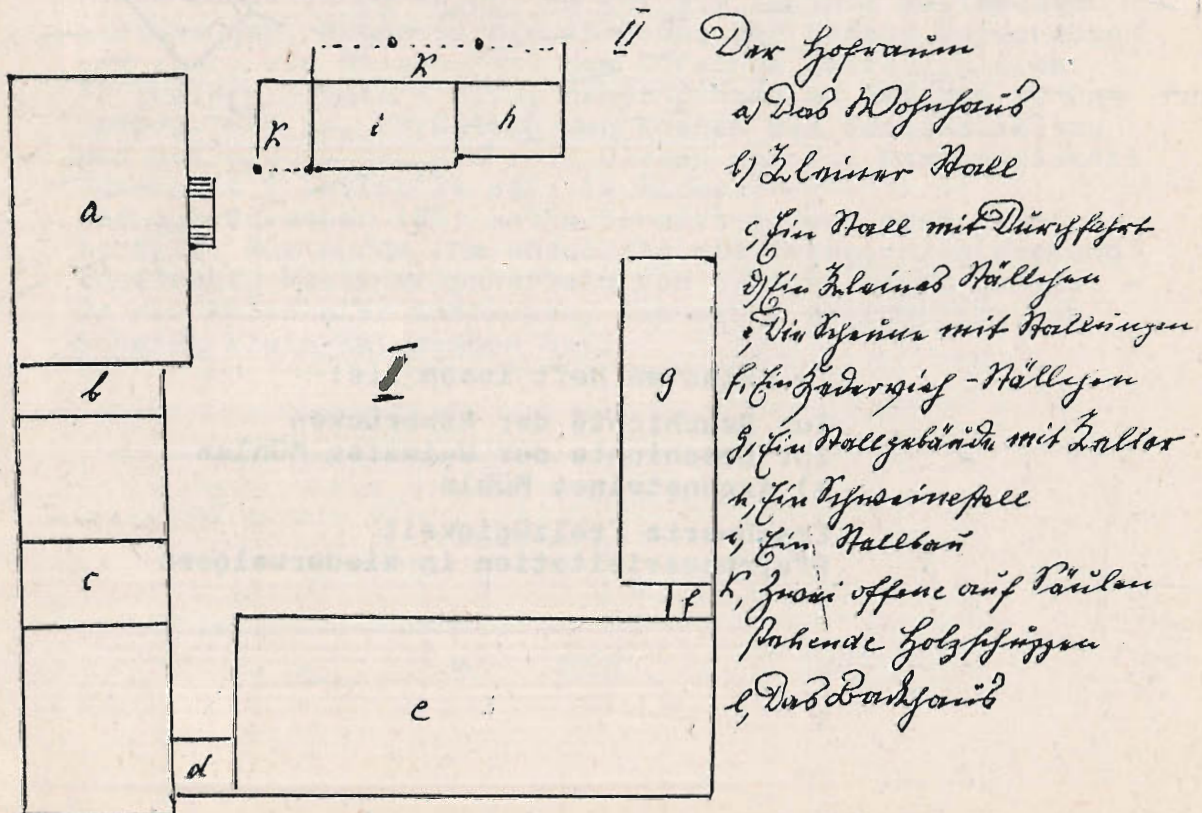 II Der Hofraum
a) Das Wohnhaus
b) Kleiner Stall
c, Ein Stall mit Durchfahrt
d) Ein kleines Ställchen
e, Die Scheune mit Stallungen
f, Ein Federvieh-Ställchen
g, Ein Stallgebäude mit Keller
h, Ein Schweinestall
i, Ein Stallbau
K, Zwei offene auf Säulen
stehende Holzschuppen
l, Das Backhaus
K
K
i
h
a
I
b
g
c
f
e
d